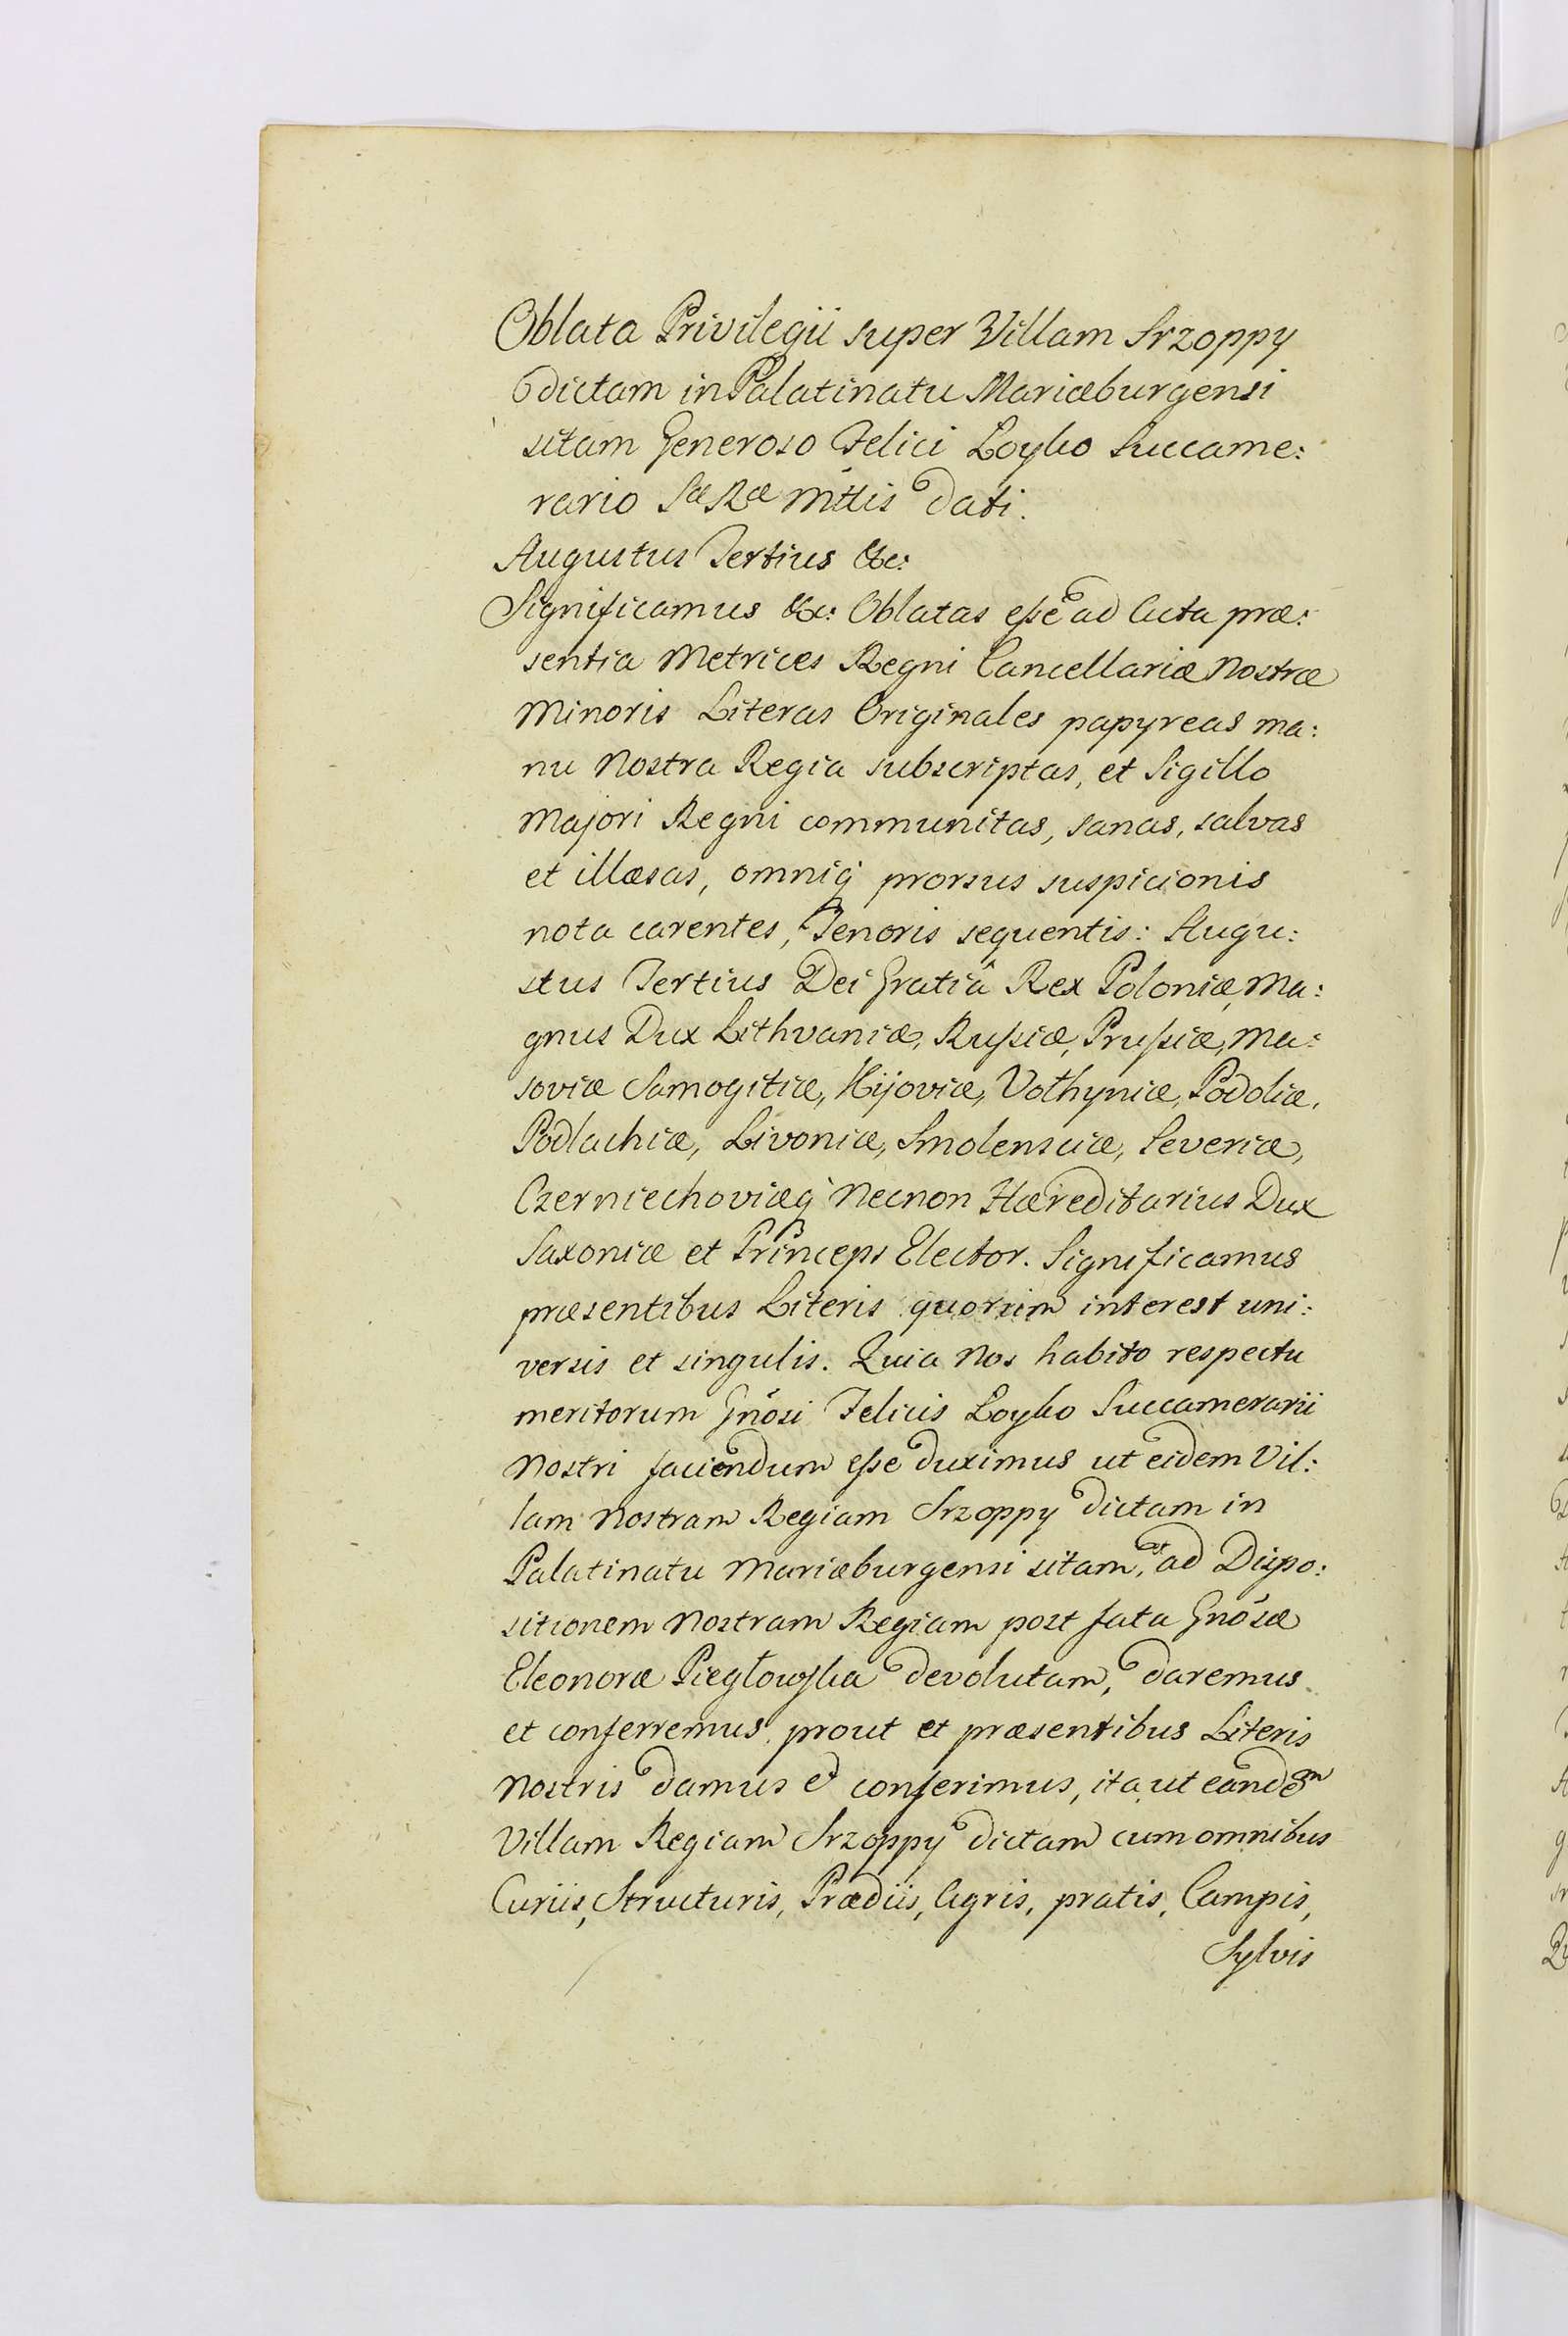 Oblata Privilegii super Villam Srzoppy
dictam in Palatinatu Mariæburgensi
sitam Generoso Felici Łoyko Succame:
rario Sæ Ræ Mttis dati.
Augustus Tertius &c:
Significamus &c: Oblatas eſse ad Acta præ:
sentia Metrices Regni Cancellariæ Nostræ
Minoris Literas Originales papyreas ma:
nu Nostra Regia subscriptas, et Sigillo
Majori Regni communitas, sanas, salvas
et illæsas, omniq́ prorsus suspicionis
nota carentes, Tenoris sequentis: Augu:
stus Tertius Dei Gratiâ Rex Poloniæ, Ma:
gnus Dux Lithvaniæ, Ruſsiæ, Pruſsiæ, Ma:
soviæ Samogitiæ, Kijoviæ, Volhyniæ, Podoliæ,
Podlachiæ, Livoniæ, Smolensciæ, Severiæ,
Czerniechoviæq́ Necnon Hæreditarius Dux
Saxoniæ et Princeps Elector. Significamus
præsentibus Literis quorum interest uni:
versis et singulis. Quia Nos habito respectu
meritorum Gnósi Felicis Łoyko Succamerarii
Nostri faciendum eſse duximus ut eidem Vil:
lam Nostram Regiam Srzoppy dictam in
Palatinatu Mariæburgensi sitam, et ad Dispo:
sitionem Nostram Regiam post fata Gnósæ
Eleonoræ Piegłowſka devolutam, daremus
et conferremus, prout et præsentibus Literis
Nostris damus et conferimus, ita ut eandem
Villam Regiam Srzoppy dictam cum omnibus
Curiis, Structuris, Prædiis, Agris, pratis, Campis,
Sylvis